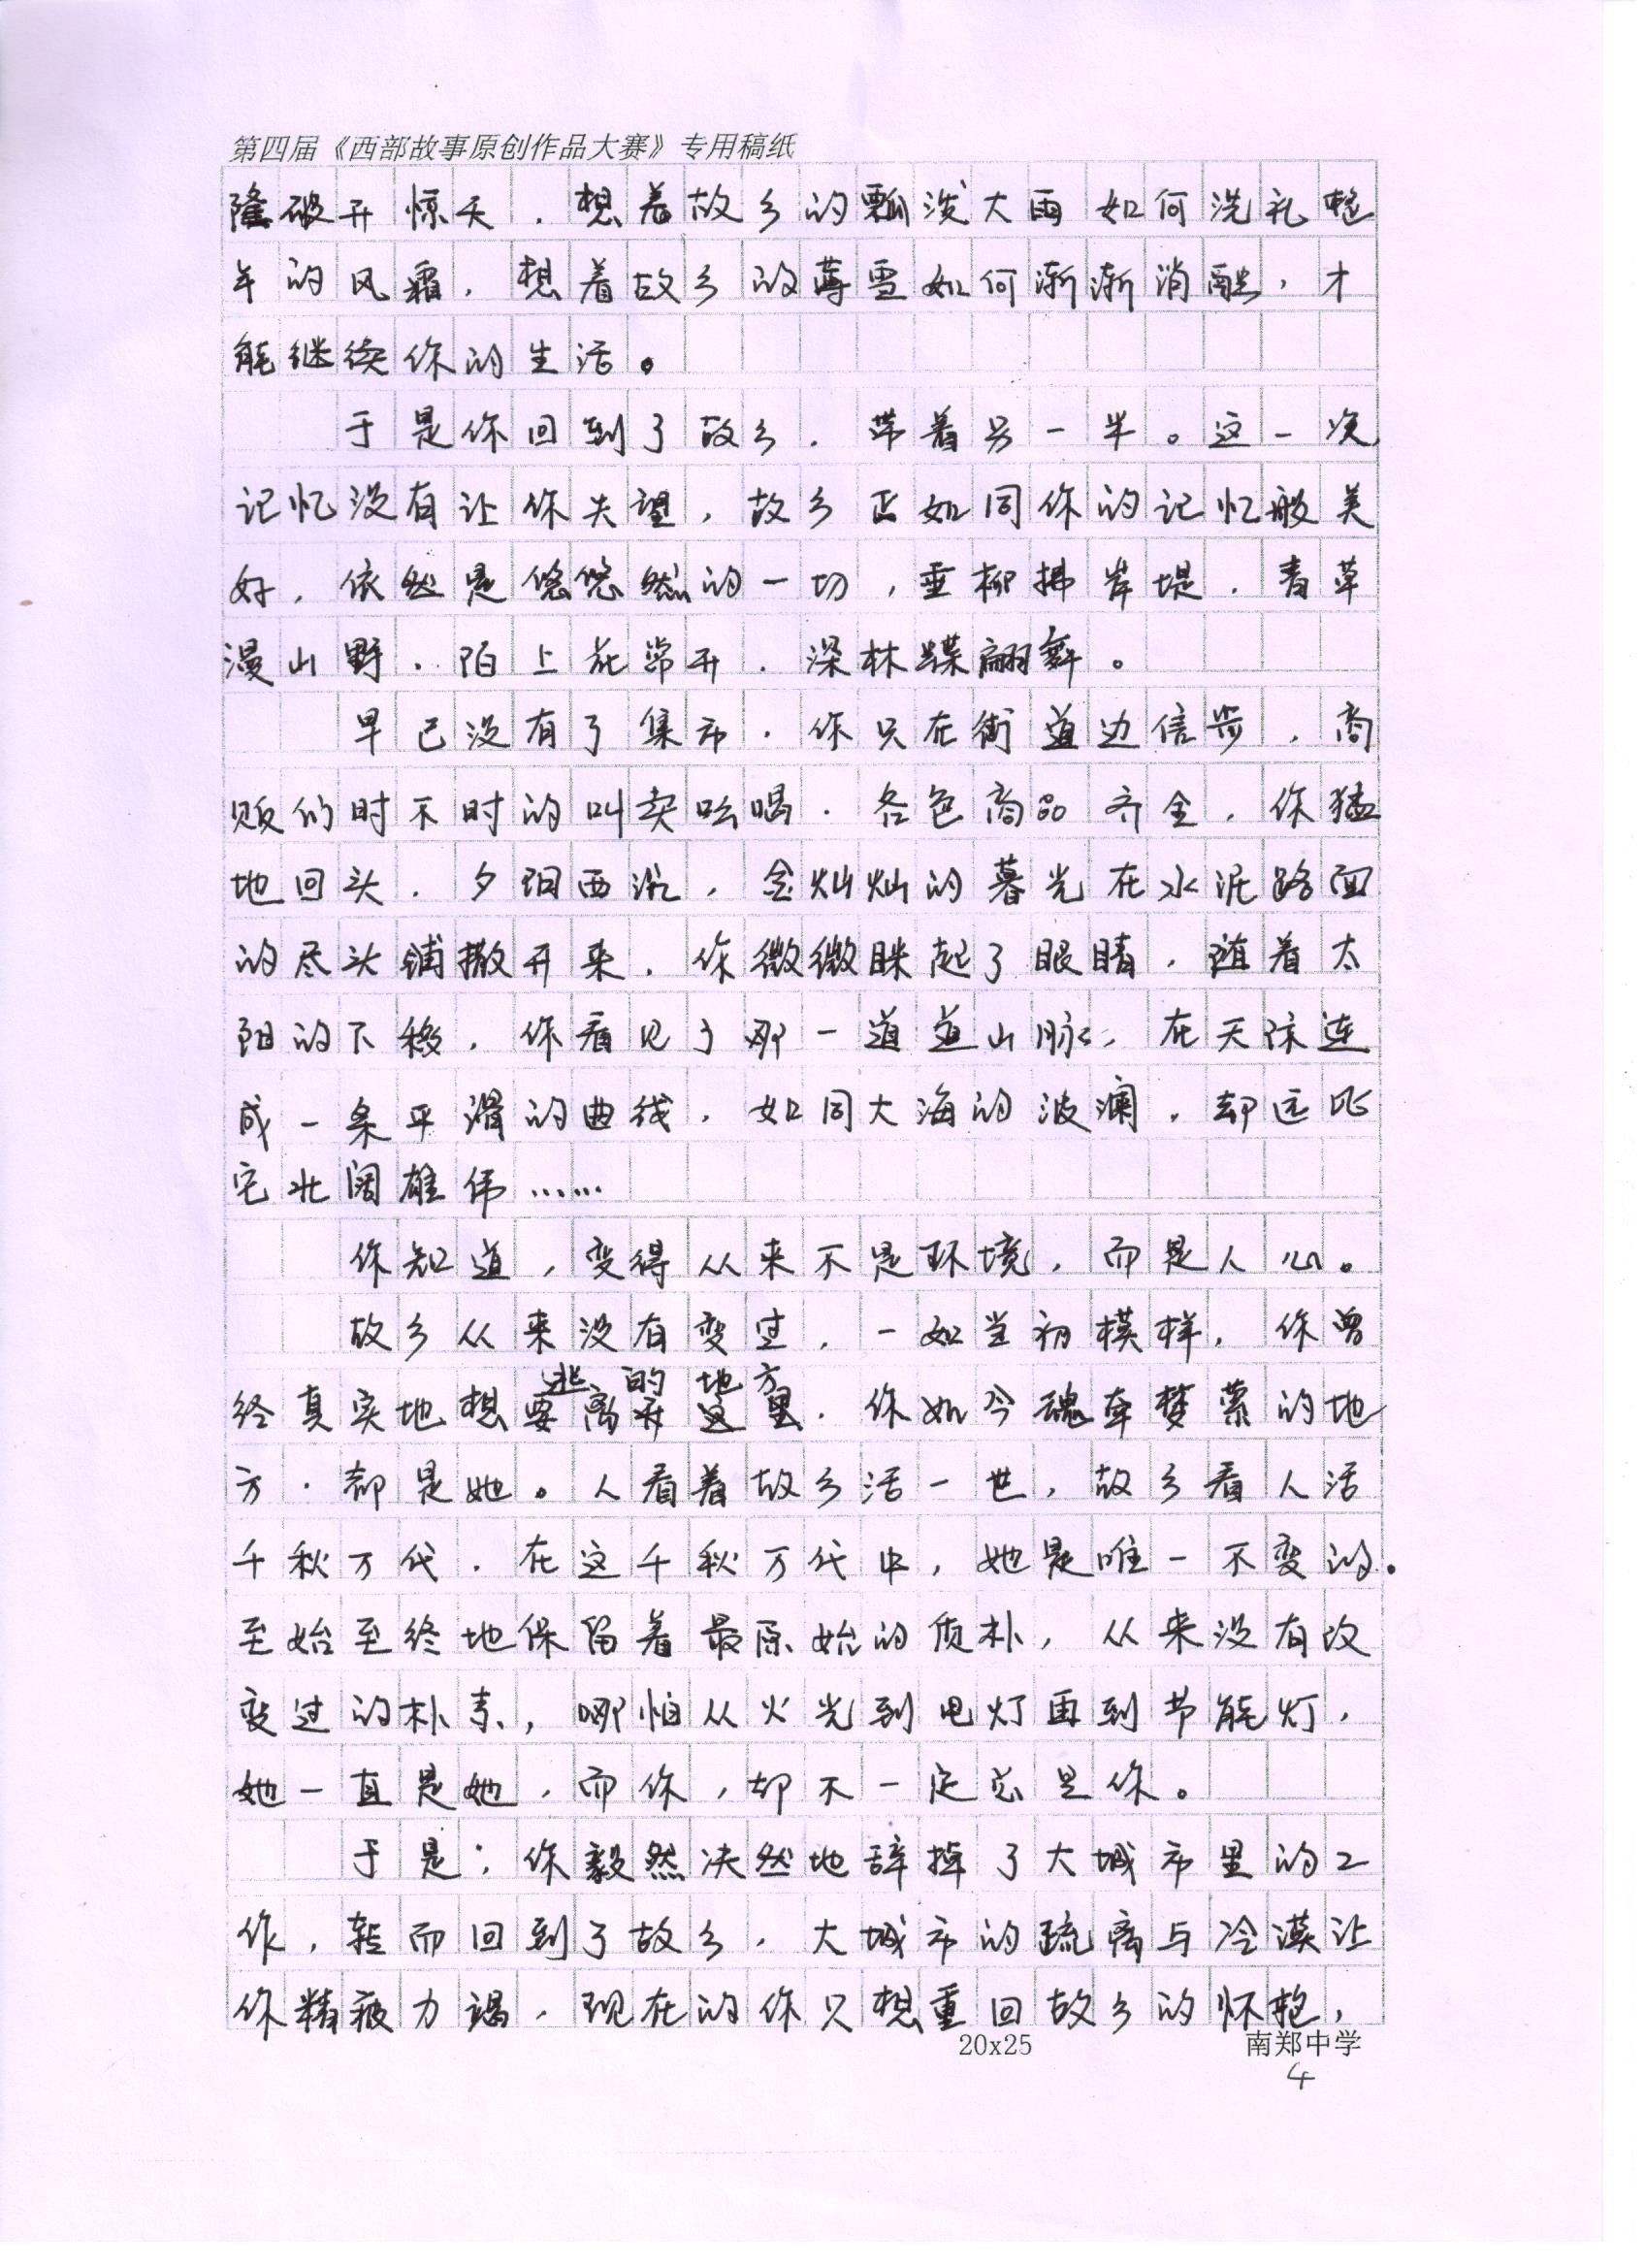 第四届《西部故事原创作品大赛》专用稿纸
隆破开惊天，想着故乡的瓢泼大雨如何洗礼整
年的风霜，想着故乡的薄雪如何渐渐消融，才
能继续你的生活。
于是你回到了故乡，带着另一半。这一次
记忆没有让你失望，故乡正如同你的记忆般美
好，依然是悠悠然的一切，垂柳拂岸堤，青草
漫山野，陌上花常开，深林蝶翩舞。
早已没有了集市，你只在街道边信步，商
贩们时不时的叫卖吆喝，各色商品齐全，你猛
地回头，夕阳西沉，金灿灿的暮光在水泥路面
的尽头铺撒开来，你微微眯起了眼睛，随着太
阳的下移，你看见了那一道道山脉，在天际连
成一条平滑的曲线，如同大海的波澜，却远比
它壮阔雄伟……
你知道，变得从来不是环境，而是人心。
故乡从来没有变过，一如当初模样，你曾
逃的地方
终真实地想要离开这里，你如今魂牵梦萦的地
方，都是她。人看着故乡活一世，故乡看人活
千秋万代，在这千秋万代中，她是唯一不变的。
至始至终地保留着最原始的质朴，从来没有改
变过的朴素，哪怕从火光到电灯再到节能灯，
她一直是她，而你，却不一定总是你。
于是，你毅然决然地辞掉了大城市里的工
作，转而回到了故乡，大城市的疏离与冷漠让
你精疲力竭，现在的你只想重回故乡的怀抱，
20x25 南郑中学
4